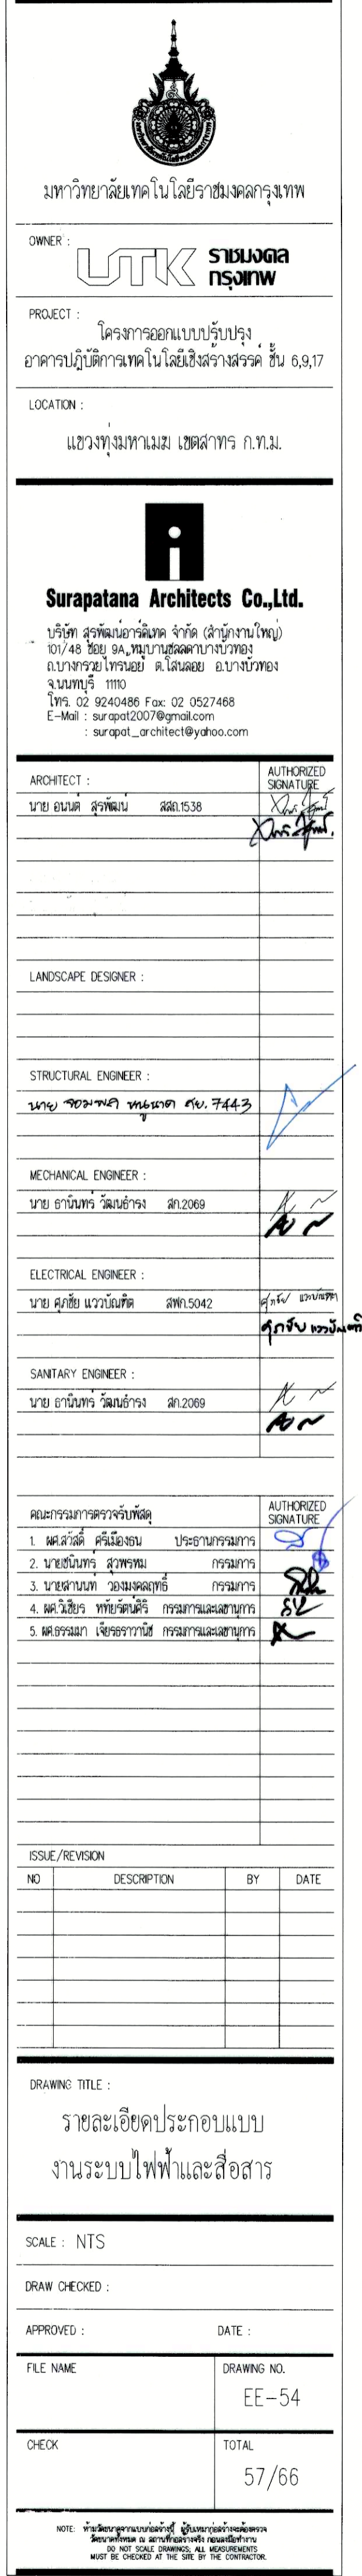 มหาวิทยาลัยเทคโนโลยีราชมงคลกรุงเทพ
OWNER :
UTK ราชมงคล
กรุงเทพ
PROJECT :
โครงการออกแบบปรับปรุง
อาคารปฏิบัติการเทคโนโลยีเชิงสร้างสรรค์ ชั้น 6,9,17
LOCATION :
แขวงทุ่งมหาเมฆ เขตสาทร ก.ท.ม.
Surapatana Architects Co.,Ltd.
บริษัท สุรพัฒน์อาร์คิเทค จำกัด (สำนักงานใหญ่)
101/48 ซอย 9A หมู่บานชลลดาบางบัวทอง
ถ.บางกรวยไทรน้อย ต.โสนลอย อ.บางบัวทอง
จ.นนทบุรี 11110
โทร. 02 9240486 Fax: 02 0527468
E-Mail : surapat2007@gmail.com
: surapat_architect@yahoo.com
ARCHITECT :
AUTHORIZED
SIGNATURE
นาย อนนต์ สุรพัฒน์ สสถ.1538
LANDSCAPE DESIGNER :
STRUCTURAL ENGINEER :
นาย จอมพล สย. 7443
MECHANICAL ENGINEER :
นาย ธานินทร์ วัฒนธำรง สก.2069
ELECTRICAL ENGINEER :
นาย ศุภชัย แววบัณฑิต สฟก.5042
ศุภชัย แววบัณฑิต
ศุภชัย แววบัณฑิต
SANITARY ENGINEER :
นาย ธานินทร์ วัฒนธำรง สก.2069
คณะกรรมการตรวจรับพัสดุ
AUTHORIZED
SIGNATURE
1. ผศ.สวัสดิ์ ศรีเมืองธน ประธานกรรมการ
2. นายชนินทร์ สุวพรหม กรรมการ
3. นายสานนท์ วองมงคลฤทธิ์ กรรมการ
4. ผศ.วิเชียร หทัยรัตน์ศิริ กรรมการและเลขานุการ
5. ผศ.ธรรมมา เจียรธราวานิช กรรมการและเลขานุการ
ISSUE/REVISION
NO DESCRIPTION BY DATE
DRAWING TITLE :
รายละเอียดประกอบแบบ
งานระบบไฟฟ้าและสื่อสาร
SCALE : NTS
DRAW CHECKED :
APPROVED : DATE :
FILE NAME DRAWING NO.
EE-54
CHECK TOTAL
57/66
NOTE: ห้ามวัดขนาดจากแบบก่อสร้างนี้ ผู้รับเหมาก่อสร้างจะต้องตรวจ
วัดขนาดทั้งหมด ณ สถานที่ก่อสร้างจริง ก่อนลงมือทำงาน
DO NOT SCALE DRAWINGS; ALL MEASUREMENTS
MUST BE CHECKED AT THE SITE BY THE CONTRACTOR.